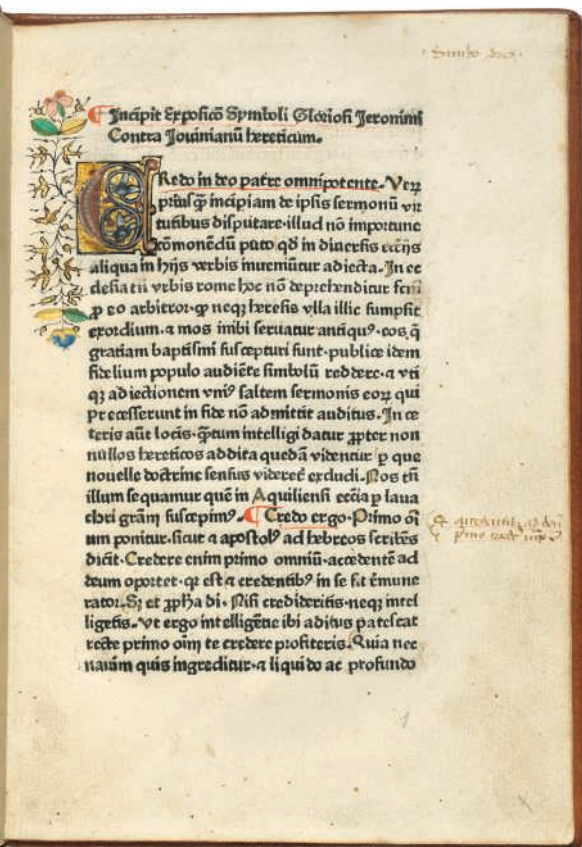 Incipit Expositio Symboli Gloriosi Jeronimi
Contra Jovinianū hereticum.
CRedo in deo patre omnipotente. Veꝝ
priusꝙ incipiam de ipsis sermonū vir
tutibus disputare. illud nō importune
cōmonēdū puto qd in diversis ecciijs
aliqua in hijs verbis inveniūtur adiecta. In ec
clesia tn̄ vrbis rome hoc nō deprehenditur
ꝓ eo arbitror. ꝙ neqꝫ heresis vlla illic sumpsit
exordium. ⁊ mos inibi seruatur antiquꝰ. eos q̄
gratiam baptismi suscepturi sunt. publice idem
fidelium populo audiēte simbolū reddere. ⁊ vti
qꝫ adiectionem vniꝰ saltem sermonis eoꝝ qui
precesserunt in fide nō admittit auditus. In ce
teris aūt locis. ꝙ̄tum intelligi datur ꝓpter non
nullos hereticos addita quedā videntur ꝑ que
nouelle doctrine sensus videret̄ excludi. Nos tn̄
illum sequamur quē in Aquiliensi eccia ꝑ laua
chri grām suscepimꝰ. Credo ergo. Primo oī
um ponitur. sicut ⁊ apostolꝰ ad hebreos scribēs
dicit. Credere enim primo omniū. accedentē ad
deum oportet. qꝛ est ⁊ credentibꝰ in se fit remune
rator. Sꝫ et ꝓpha di. Nisi credideritis. neqꝫ intel
ligetis. Vt ergo intelligētie ibi aditus patescat
recte primo oīm te credere profiteris. Quia nec
nauim quis ingreditur. ⁊ liquido ac profundo